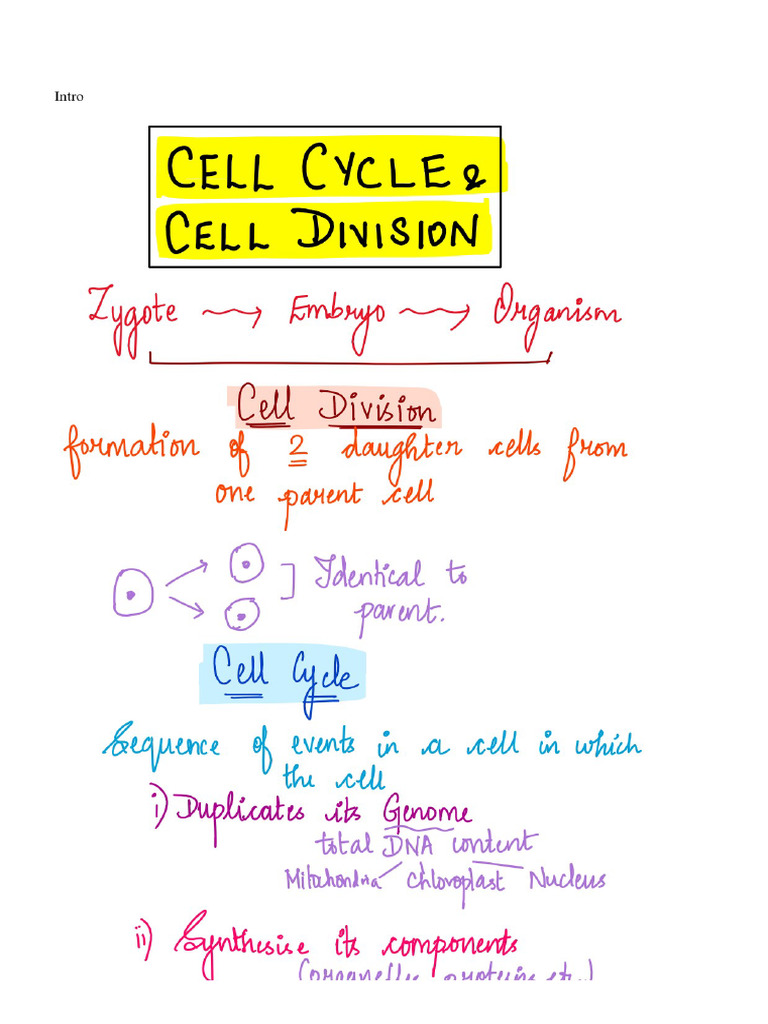 Intro
CELL CYCLE &
CELL DIVISION
Zygote → Embryo → Organism
Cell Division
formation of 2 daughter cells from
one parent cell
Identical to
parent.
Cell Cycle
Sequence of events in a cell in which
the cell
i) Duplicates its Genome
total DNA content
Mitochondria Chloroplast Nucleus
ii) Synthesise its components
(organelles, proteins etc.)